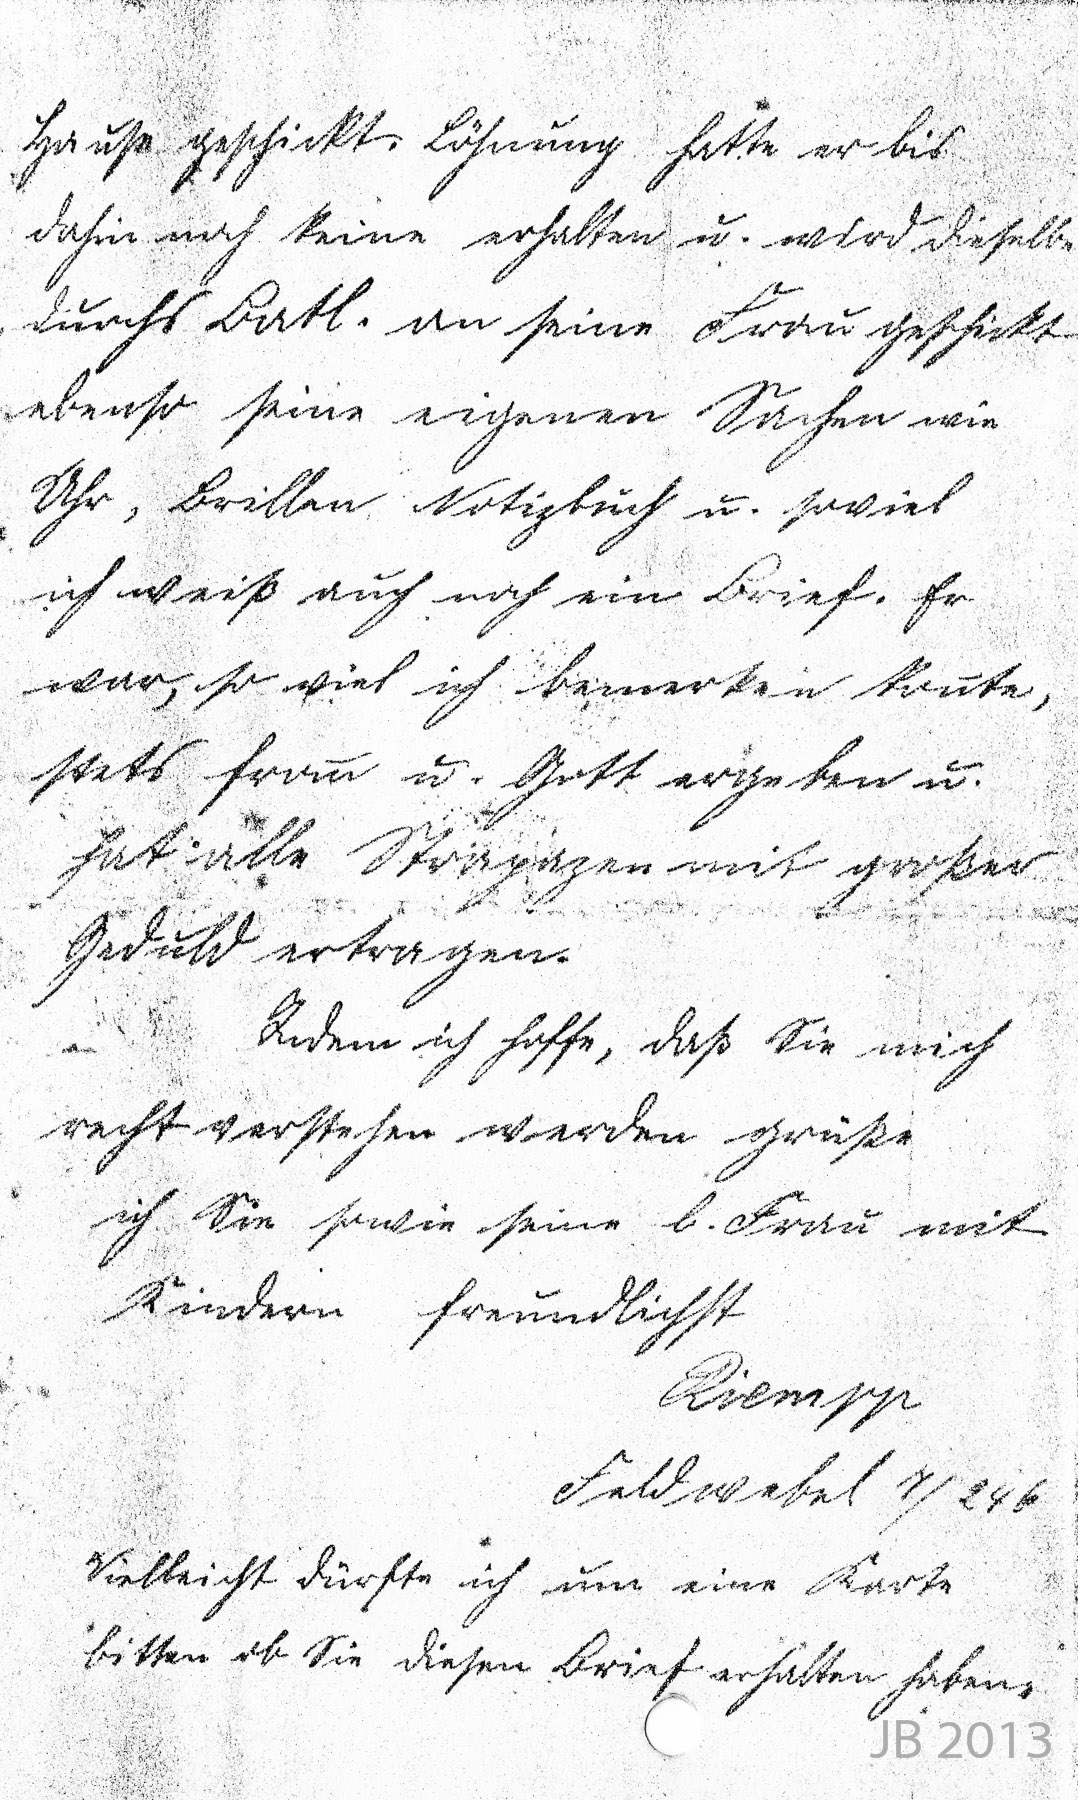 Hause geschickt. Löhnung hatte er bis
dahin noch keine erhalten u. wird dieselbe
durchs Batl. an seine Frau geschickt
ebenso seine eigenen Sachen wie
Uhr, Brillen Notizbuch u. soviel
ich weiß auch noch ein Brief. Er
war, so viel ich bemerken konte,
stets from u. Gott ergeben u.
hat alle Strapazen mit großer
Geduld ertragen.
Indem ich hoffe, daß Sie mich
recht verstehen werden grüße
ich Sie sowie seine l. Frau mit
Kindern freundlichst
Riempp
Feldwebel 7/246
Vielleicht dürfte ich um eine Karte
bitten ob Sie diesen Brief erhalten haben.
JB 2013